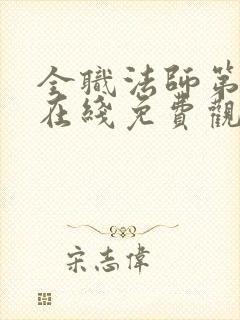 全職法師第
在綫免費觀
宋志偉